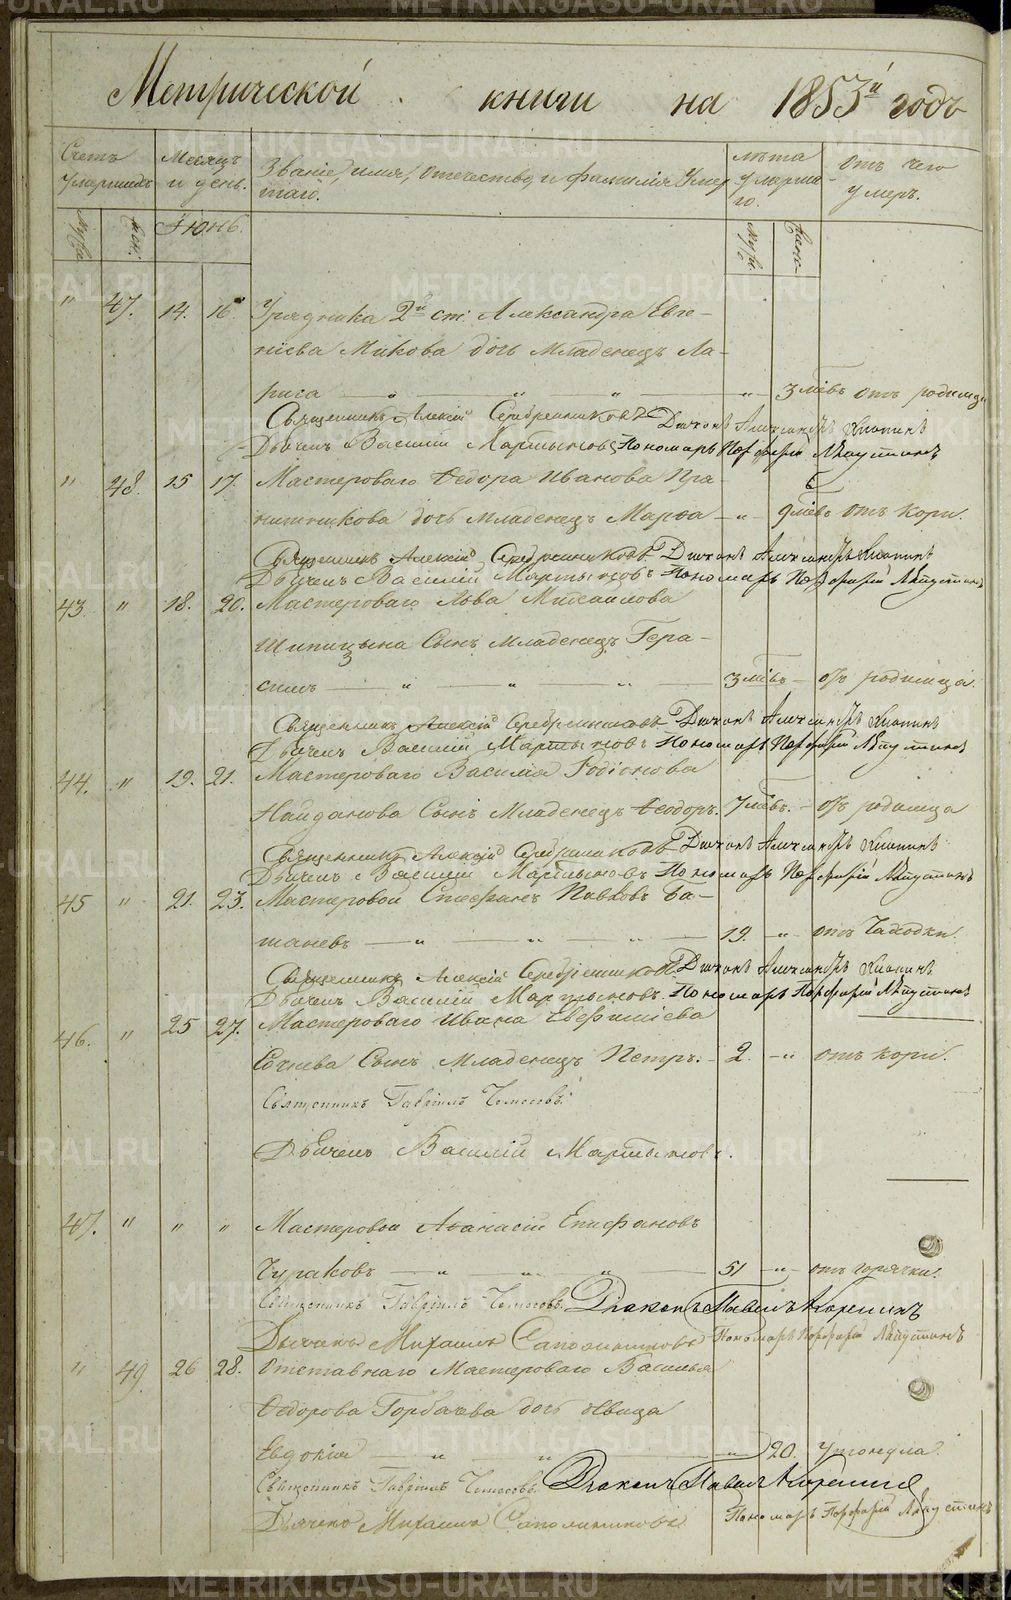 Метрической книги на 1853й годъ
Счетъ умершихъ
Месяцъ и день.
Званіе, имя, отечество и фамилія умер
шаго.
лѣта умерша
го.
отъ чего умеръ.
Муж. Жен.
Іюнь.
Муж. Женс.
" 47. 14. 16. Урядника 2й ст. Александра Евге-
ніева Микова дочь младенецъ Ла-
риса " " " " 3 мѣс. отъ родимца
Священникъ Алексій Серебренниковъ Діаконъ Александръ Кпопинъ
Дьячекъ Василій Мартыновъ Пономарь Порфирій
" 48. 15 17. Мастероваго Ѳедора Иванова Пря
нишникова дочь младенецъ Марѳа " 9 мѣс. отъ кори.
Священникъ Алексій Серебренниковъ Діаконъ Александръ
Дьячекъ Василій Мартыновъ Пономарь Порфирій
43. " 18. 20. Мастероваго Льва Михаилова
Шипицына сынъ младенецъ Гера-
симъ " " " 3 мѣс. отъ родимца.
Священникъ Алексій Серебренниковъ Діаконъ Александръ
Дьячекъ Василій Мартыновъ Пономарь Порфирій
44. " 19. 21. Мастероваго Василія Родіонова
Найданова сынъ младенецъ Ѳеодоръ. 7 мѣс. отъ родимца
Священникъ Алексій Серебренниковъ Діаконъ Александръ
Дьячекъ Василій Мартыновъ Пономарь Порфирій
45 " 21. 23. Мастеровой Стефанъ Павловъ Ба-
таневъ " " " 19. " отъ чахотки.
Священникъ Алексій Серебренниковъ Діаконъ Александръ
Дьячекъ Василій Мартыновъ. Пономарь Порфирій
46. " 25 27. Мастероваго Ивана Евфиміева
Сочнева сынъ младенецъ Петръ. 2. " отъ кори.
Священникъ Гавріилъ
Дьячекъ Василій Мартыновъ.
47. " " " Мастеровой Аѳанасій Епифановъ
Чураковъ " " " 51 " отъ горячки.
Священникъ Гавріилъ Діаконъ Павелъ
Дьячекъ Михаилъ Сапожниковъ Пономарь Порфирій
" 49. 26 28. Отставнаго мастероваго Василья
Ѳедорова Горбачева дочь дѣвица
Евдокія " " " 20. утонула.
Священникъ Гавріилъ Діаконъ Павелъ
Дьячекъ Михаилъ Сапожниковъ Пономарь Порфирій
METRIKI.GASO-URAL.RU